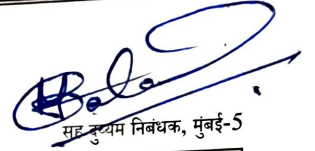 सह दुय्यम निबंधक, मुंबई-5